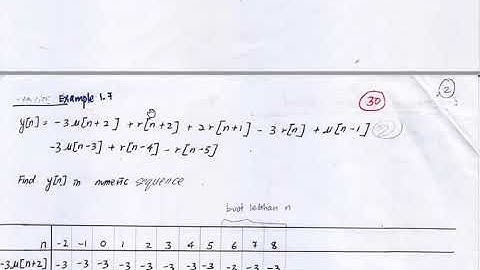 Example 1.7
30
2
y[n] = -3μ[n+2] + r[n+2] + 2r[n+1] - 3r[n] + μ[n-1]
-3μ[n-3] + r[n-4] - r[n-5]
Find y[n] in numeric sequence
buat lebihan n
n -2 -1 0 1 2 3 4 5 6 7 8
-3μ[n+2] -3 -3 -3 -3 -3 -3 -3 -3 -3 -3 -3